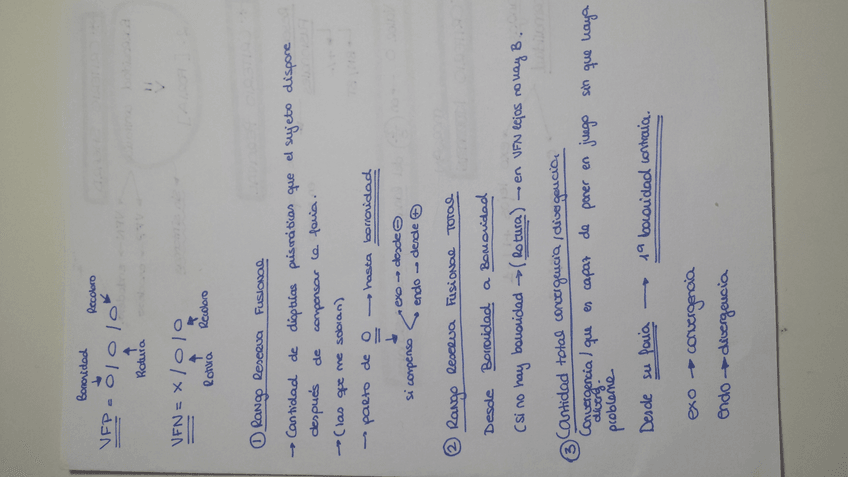 Borrosidad Recobro
VFP = 0 / 0 / 0
Rotura
VFN = X / 0 / 0
Rotura Recobro
① Rango Reserva Fusional
→ Cantidad de dioptrías prismáticas que el sujeto dispone
después de compensar la foria.
→ (las que me sobran)
→ parto de 0 → hasta borrosidad
si compenso exo → desde ⊖
endo → desde ⊕
② Rango Reserva Fusional Total
Desde Borrosidad a Borrosidad
(si no hay borrosidad → (Rotura) → en VFN lejos no hay B.
③ Cantidad total convergencia / divergencia.
Convergencia / que es capaz de poner en juego sin que haya
diverg.
problema.
Desde su foria → 1ª borrosidad contraria.
exo → convergencia
endo → divergencia